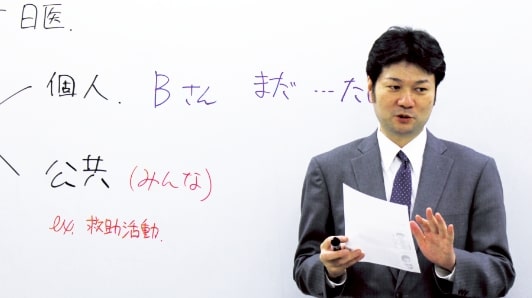 日医.
個人. Bさん まだ …た
公共 (みんな)
ex. 救助活動.